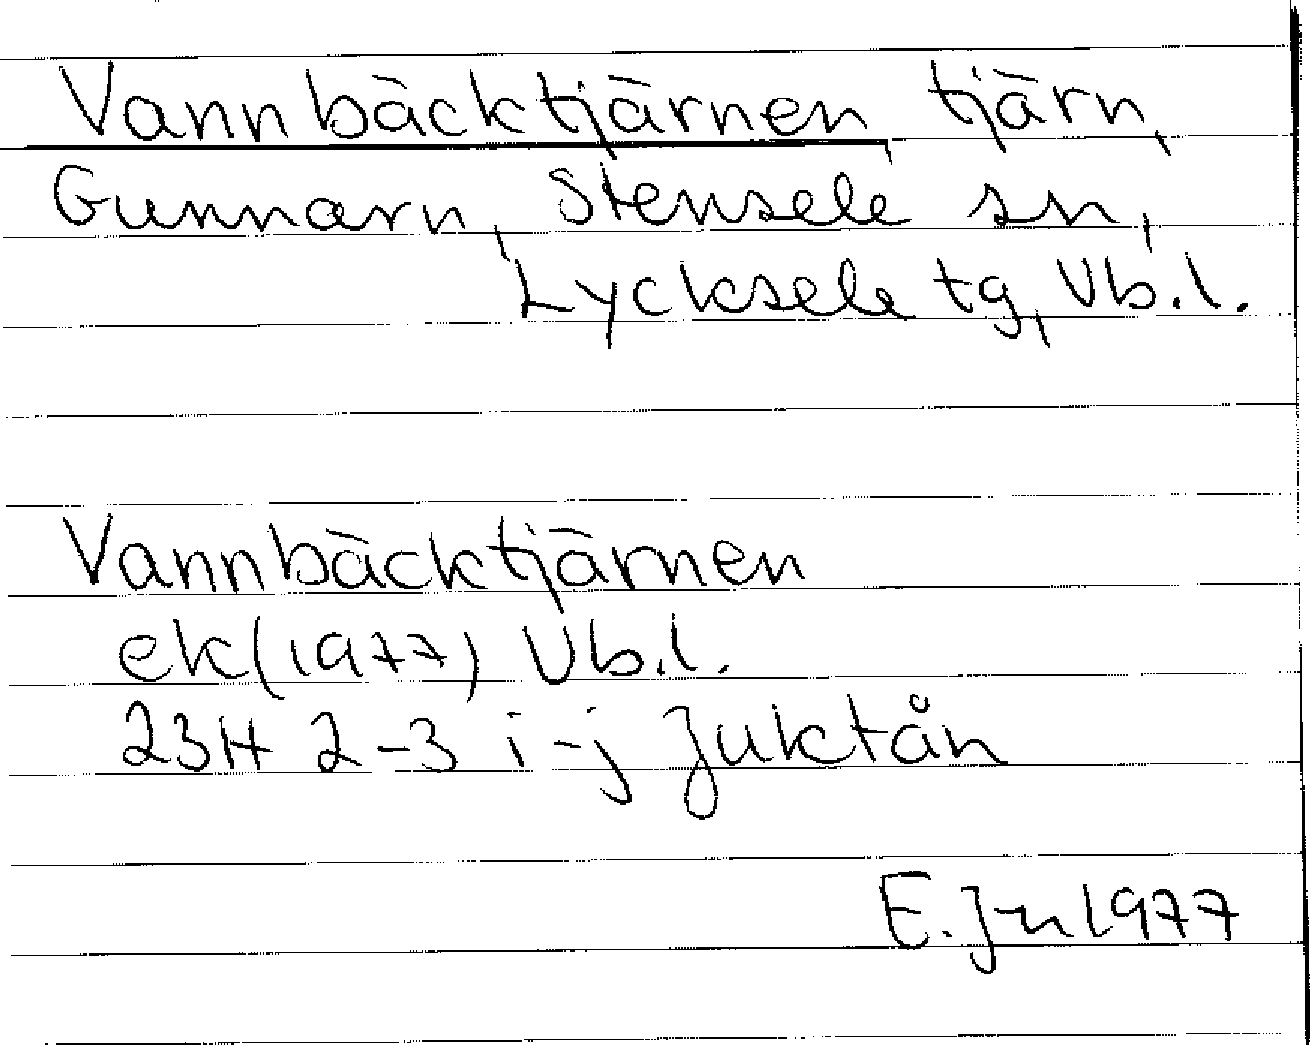 Vannbäcktjärnen, tjärn,
Gunnarn, Stensele sn,
Lycksele tg, Vb.l.
Vannbäcktjärnen
ek(1977) Vb.l.
23H 2-3 i-j Juktån
E. Jn 1977